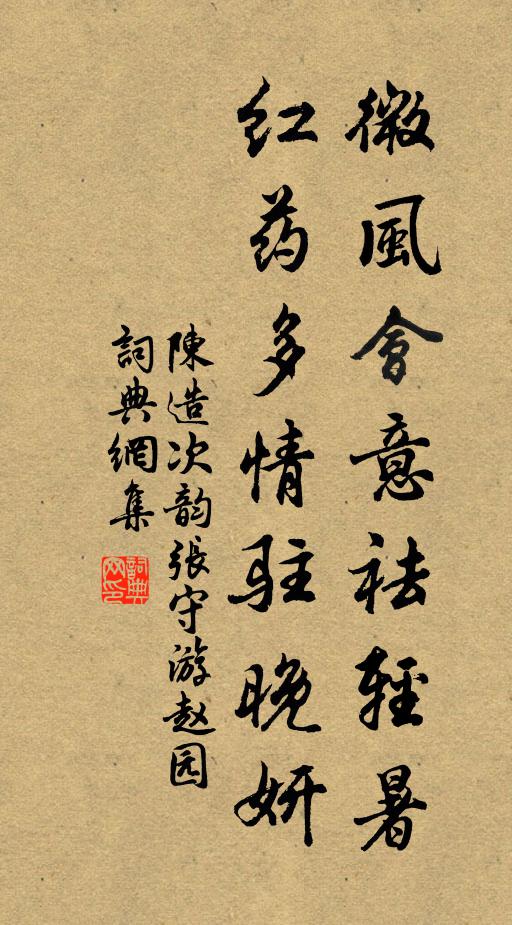 微風會意祛輕暑
红药多情驻晚妍
陳造次韵張守游赵园
詞典網集
詞典
网印